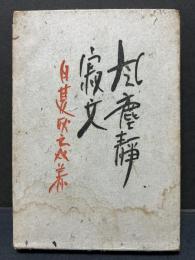 風塵静
寂文
日夏耿之介著